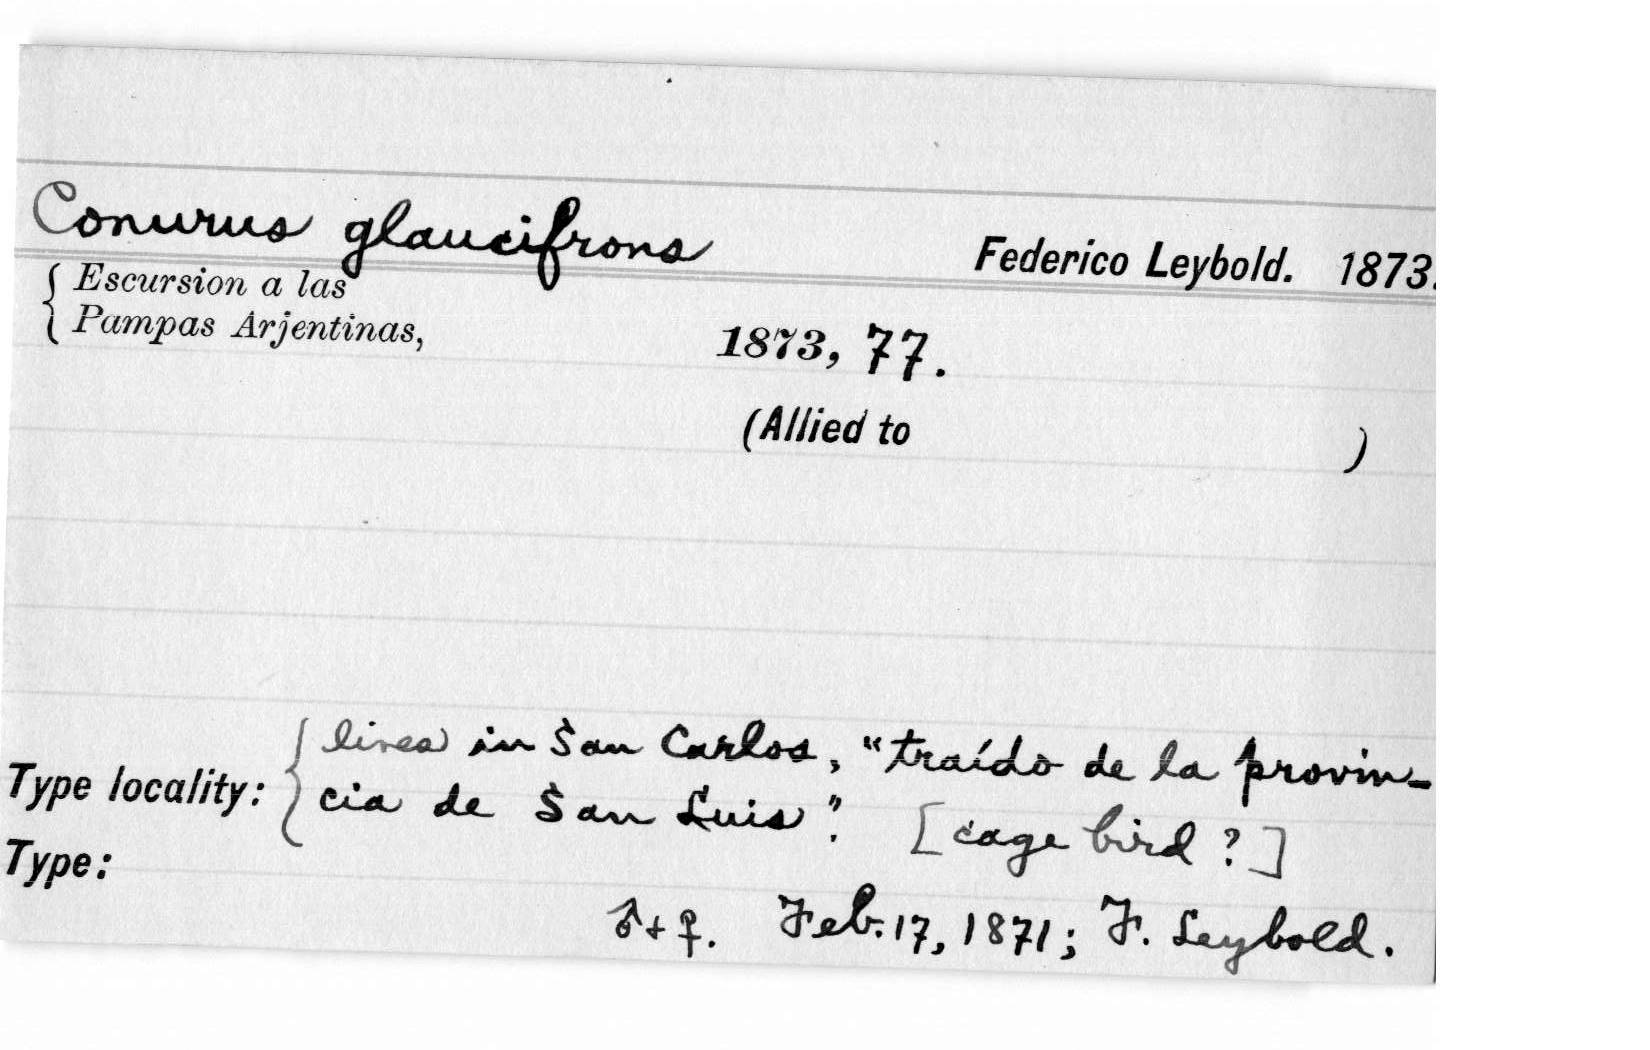 Conurus glaucifrons Federico Leybold. 1873.
{ Escursion a las
Pampas Arjentinas, 1873, 77.
(Allied to )
Type locality: { lives in San Carlos, "traído de la provin-
cia de San Luis". [cage bird?]
Type:
♂+♀. Feb. 17, 1871; F. Leybold.